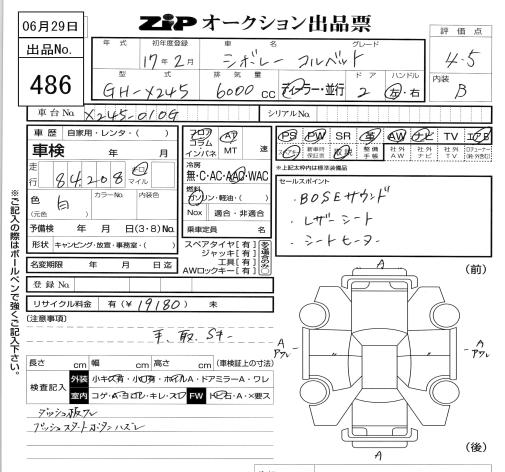 06月29日
ZiP オークション出品票
出品No.
486
年式 初年度登録 車名 グレード
17年2月 シボレー コルベット
型式 排気量 ドア ハンドル
GH-X245 6000 cc ディーラー・並行 2 左・右
評価点
4.5
内装
B
車台No. X245-010G
シリアルNo.
車歴 自家用・レンタ・( )
車検 年 月
走行 84,208 キロ マイル
色 (元色) 白 カラーNo. 内装色
予備検 年 月 日(3・8)No.
形状 キャンピング・放宣・事務室・( )
名変期限 年 月 日迄
登録No.
リサイクル料金 有(¥19180) 未
フロア コラム インパネ
AT MT 速
冷房
無・C・AC・AAC・WAC
燃料
ガソリン・軽油・( )
Nox 適合・非適合
乗車定員 名
スペアタイヤ[有]
ジャッキ[有]
工具[有]
AWロックキー[有]
PS PW SR 革 AW ナビ TV エアB
取説 整備手帳 社外AW 社外ナビ 社外TV
※上記太枠内は標準装備品
セールスポイント
・BOSEサウンド
・レザーシート
・シートヒーター
[注意事項]
手、取、Sキー
長さ cm 幅 cm 高さ cm (車検証上の寸法)
検査記入
外装 小キズ有・小凹有・ホイルA・ドアミラーA・ワレ
室内 コゲ・A・ヨゴレ・キレ・スレ FW トビ石・A・×要ス
ダッシュ板ワレ
プッシュスタートボタンハズレ
※ご記入の際はボールペンで強くご記入下さい。
(前)
A
A
アワレ
A
アワレ
A
(後)